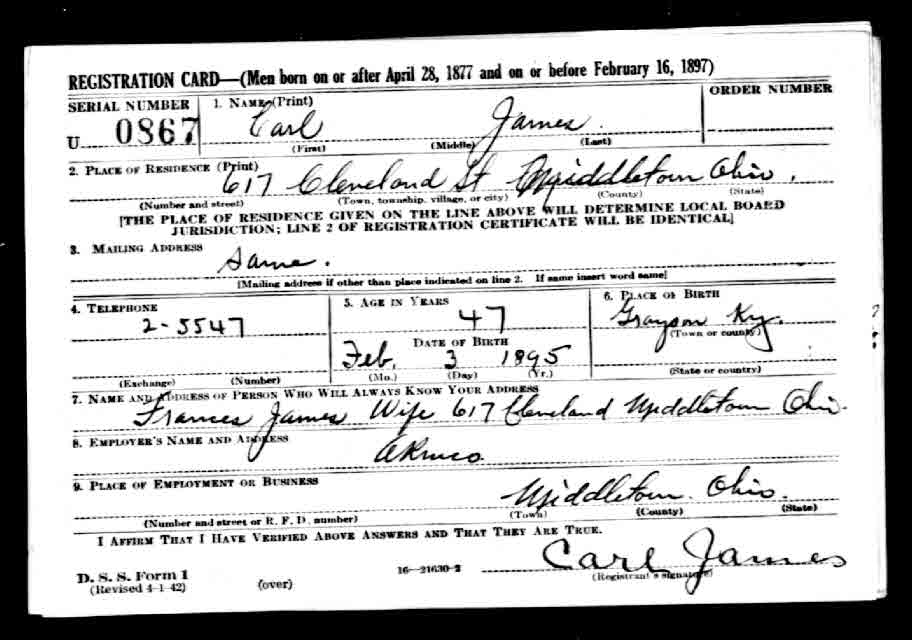 REGISTRATION CARD—(Men born on or after April 28, 1877 and on or before February 16, 1897)
SERIAL NUMBER 1. NAME (Print) ORDER NUMBER
U 0867 Carl James.
(First) (Middle) (Last)
2. PLACE OF RESIDENCE (Print)
617 Cleveland St Middletown Ohio.
(Number and street) (Town, township, village, or city) (County) (State)
[THE PLACE OF RESIDENCE GIVEN ON THE LINE ABOVE WILL DETERMINE LOCAL BOARD
JURISDICTION; LINE 2 OF REGISTRATION CERTIFICATE WILL BE IDENTICAL]
3. MAILING ADDRESS
Same.
[Mailing address if other than place indicated on line 2. If same insert word same]
4. TELEPHONE 5. AGE IN YEARS 6. PLACE OF BIRTH
2-5547 47 Grayson Ky.
(Town or county)
DATE OF BIRTH
Feb. 3 1895
(Exchange) (Number) (Mo.) (Day) (Yr.) (State or country)
7. NAME AND ADDRESS OF PERSON WHO WILL ALWAYS KNOW YOUR ADDRESS
Frances James Wife 617 Cleveland Middletown Ohio.
8. EMPLOYER'S NAME AND ADDRESS
9. PLACE OF EMPLOYMENT OR BUSINESS
Middletown. Ohio.
(Number and street or R. F. D. number) (Town) (County) (State)
I AFFIRM THAT I HAVE VERIFIED ABOVE ANSWERS AND THAT THEY ARE TRUE.
Carl James
D. S. S. Form 1 16—21630-2 (Registrant's signature)
(Revised 4-1-42) (over)